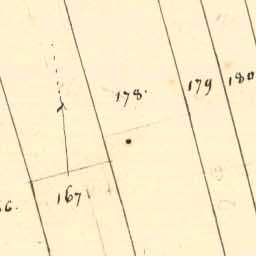 178.
179
180
167
66.